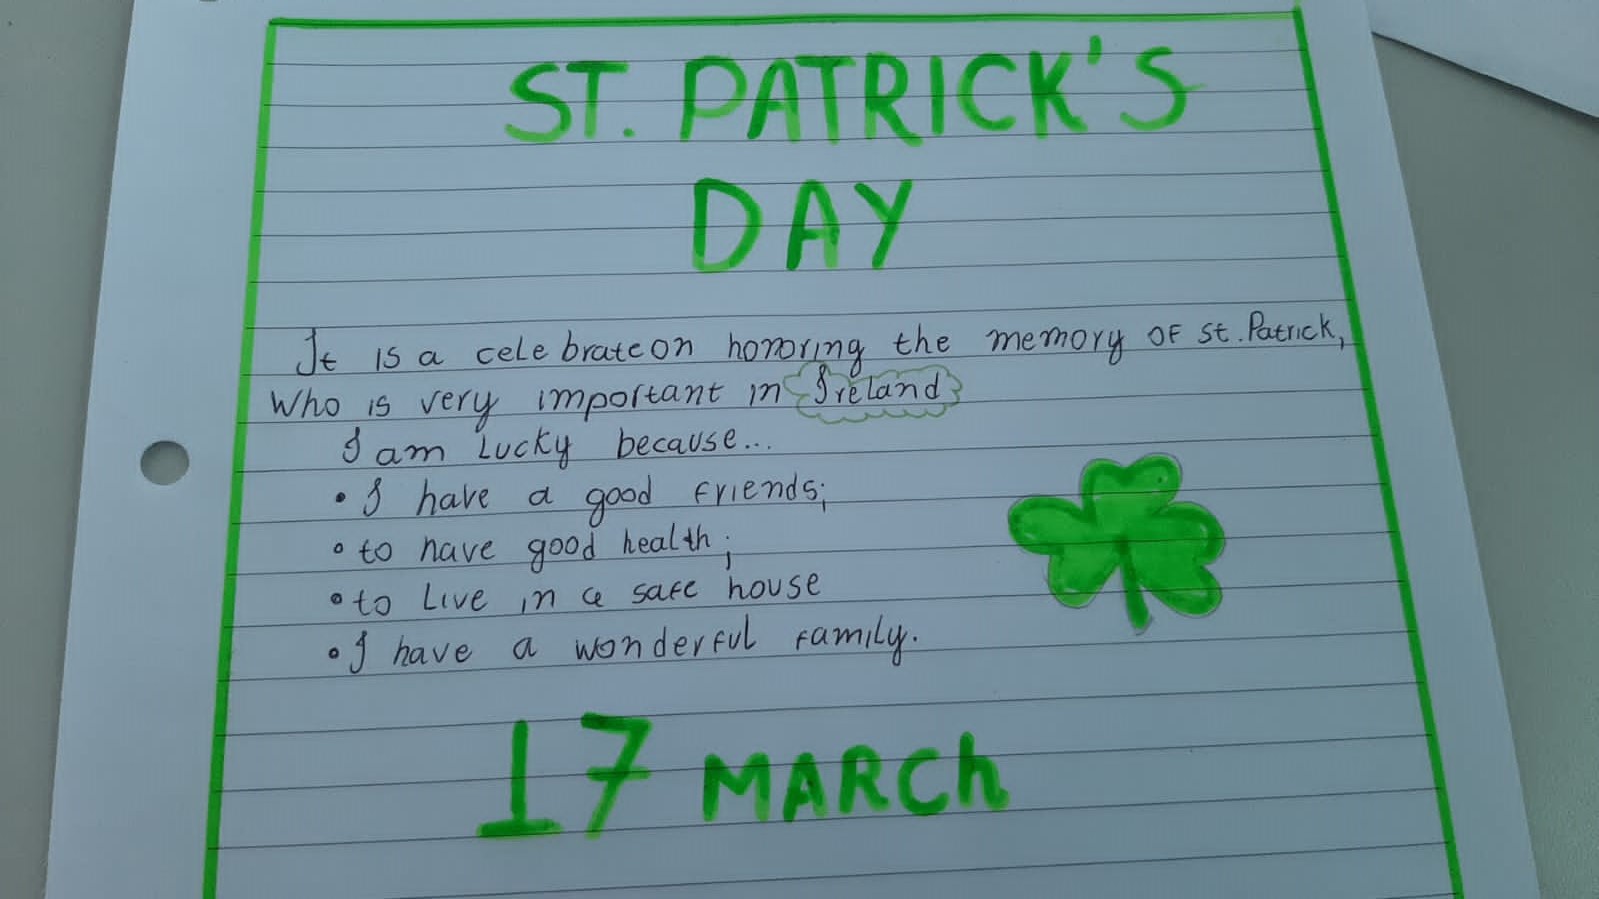 ST. PATRICK'S
DAY
It is a celebrateon honoring the memory of st. Patrick,
Who is very important in Ireland
I am Lucky because...
• I have a good friends;
• to have good health;
• to Live in a safe house
• I have a wonderful family.
17 MARCh